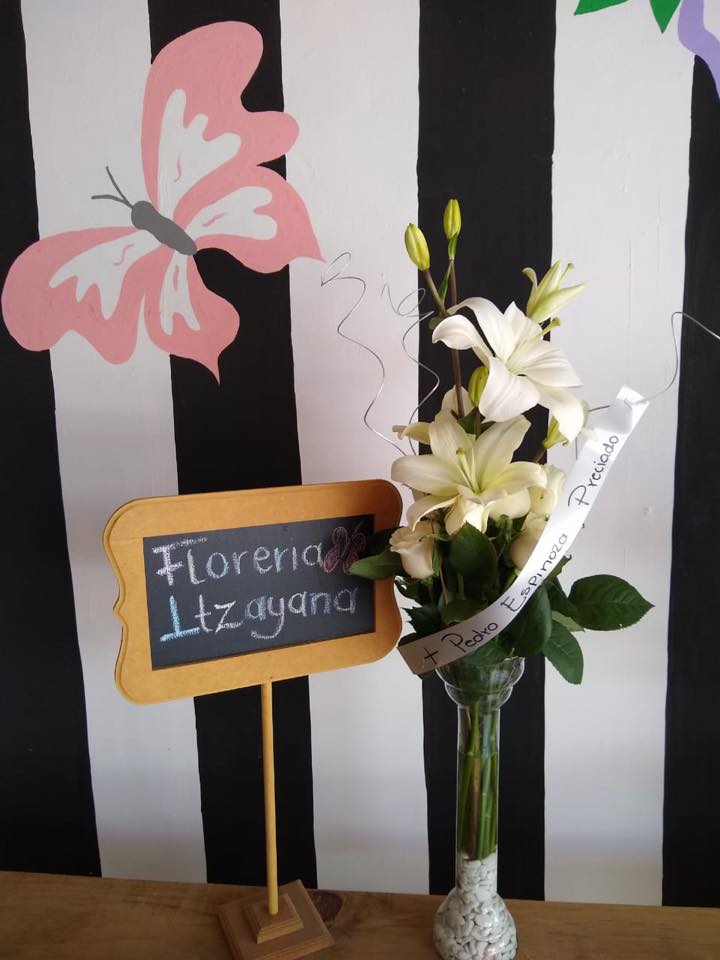 Florería
Itzayana
+ Pedro Espinoza Preciado